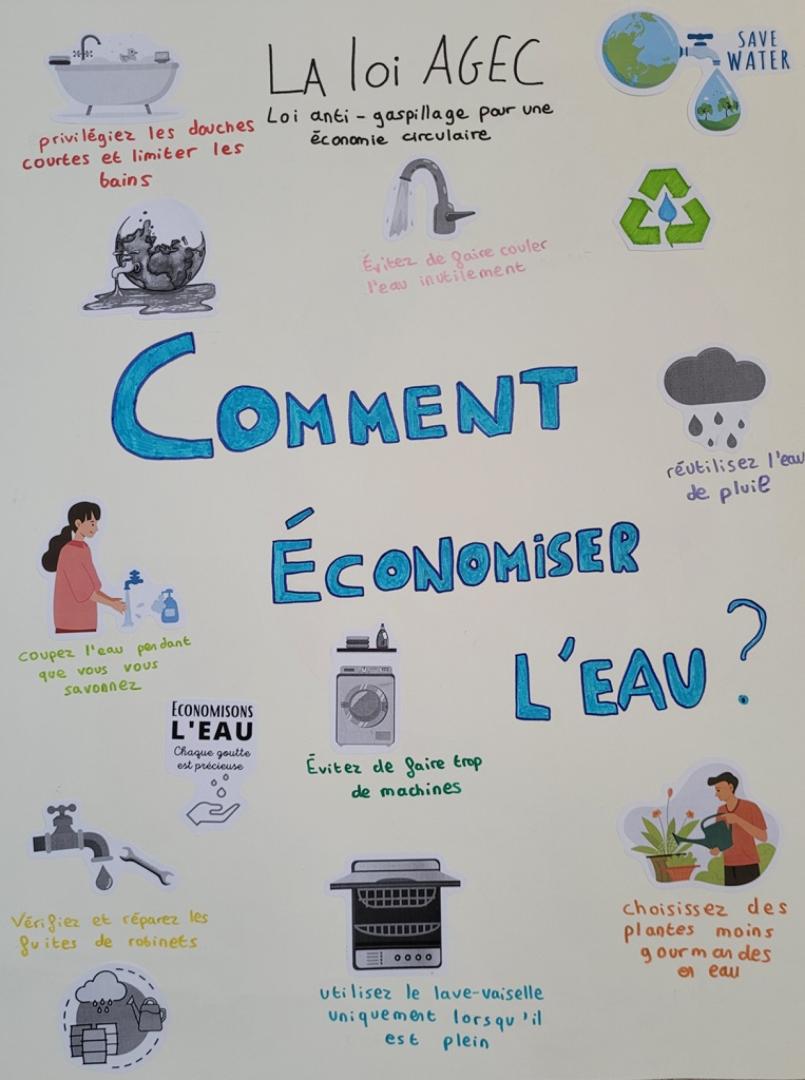 LA loi AGEC
Loi anti-gaspillage pour une
économie circulaire
SAVE
WATER
privilégiez les douches
courtes et limiter les
bains
Évitez de faire couler
l'eau inutilement
COMMENT
ÉCONOMISER
L'EAU?
réutilisez l'eau
de pluie
coupez l'eau pendant
que vous vous
savonnez
ECONOMISONS
L'EAU
Chaque goutte
est précieuse
Évitez de faire trop
de machines
Vérifiez et réparez les
fuites de robinets
utilisez le lave-vaiselle
uniquement lorsqu'il
est plein
choisissez des
plantes moins
gourmandes
en eau